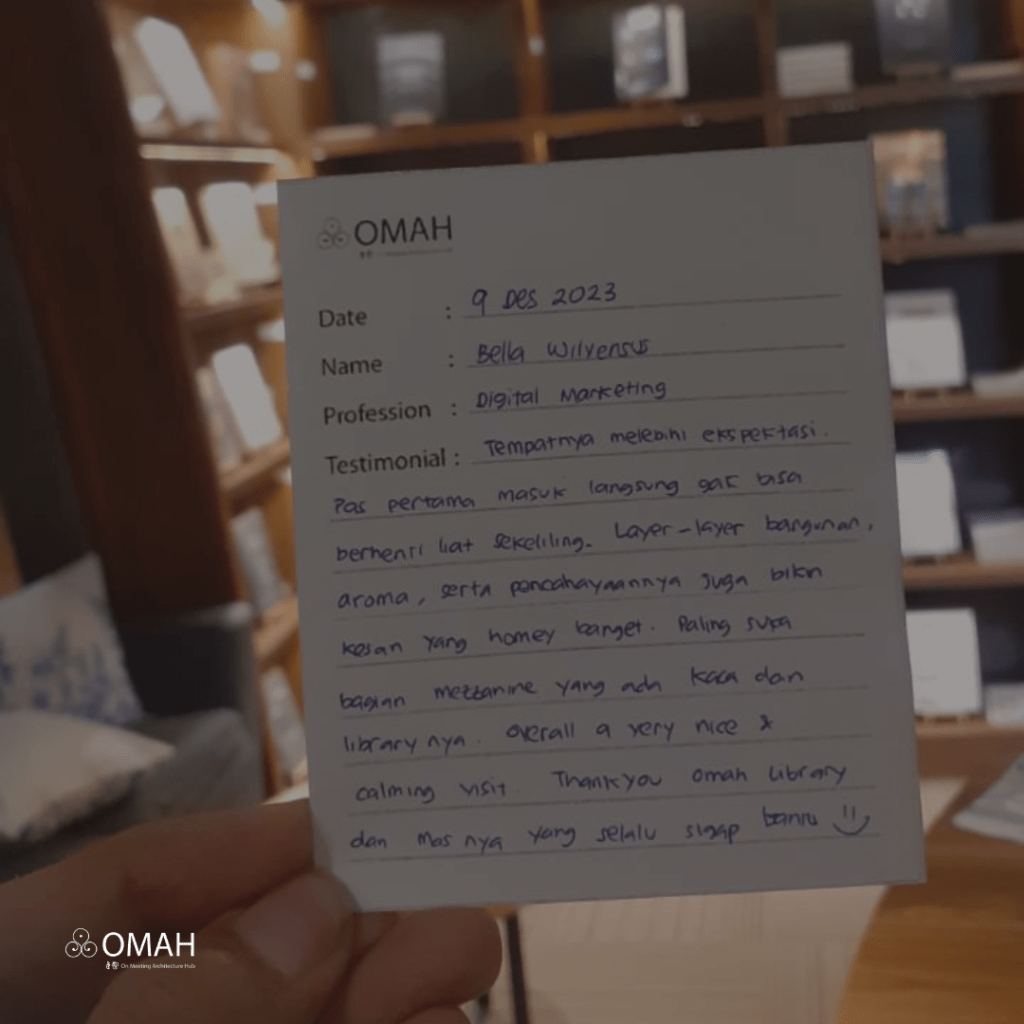 OMAH
Date : 9 Des 2023
Name : Bella Wilyensus
Profession : Digital Marketing
Testimonial : Tempatnya melebihi ekspektasi.
Pas pertama masuk langsung gak bisa
berhenti liat sekeliling. Layer-layer bangunan,
aroma, serta pencahayaannya juga bikn
kesan yang homey banget. Paling suka
bagian mezzanine yang ada kaca dan
library nya. Overall a very nice &
calming visit. Thankyou Omah Library
dan Mas nya yang selalu sigap bantu
OMAH
On Meeting Architecture Hub